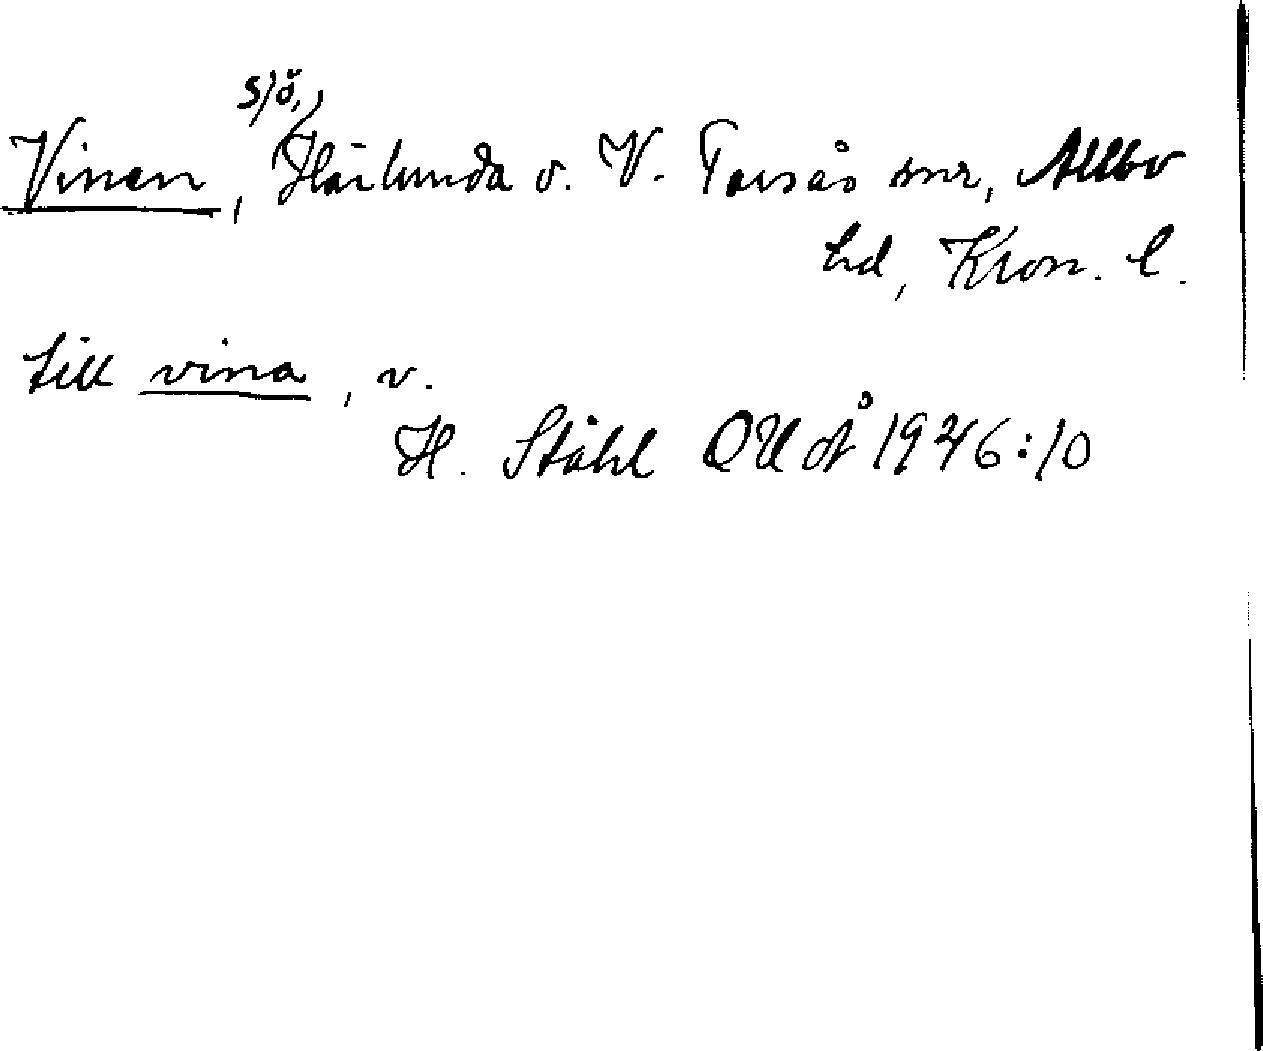 Vinen, sjö, Härlunda o. V. Torsås snr, Allbo
hd, Kron. l.
till vina, v.
H. Ståhl OUÅ 1946:10